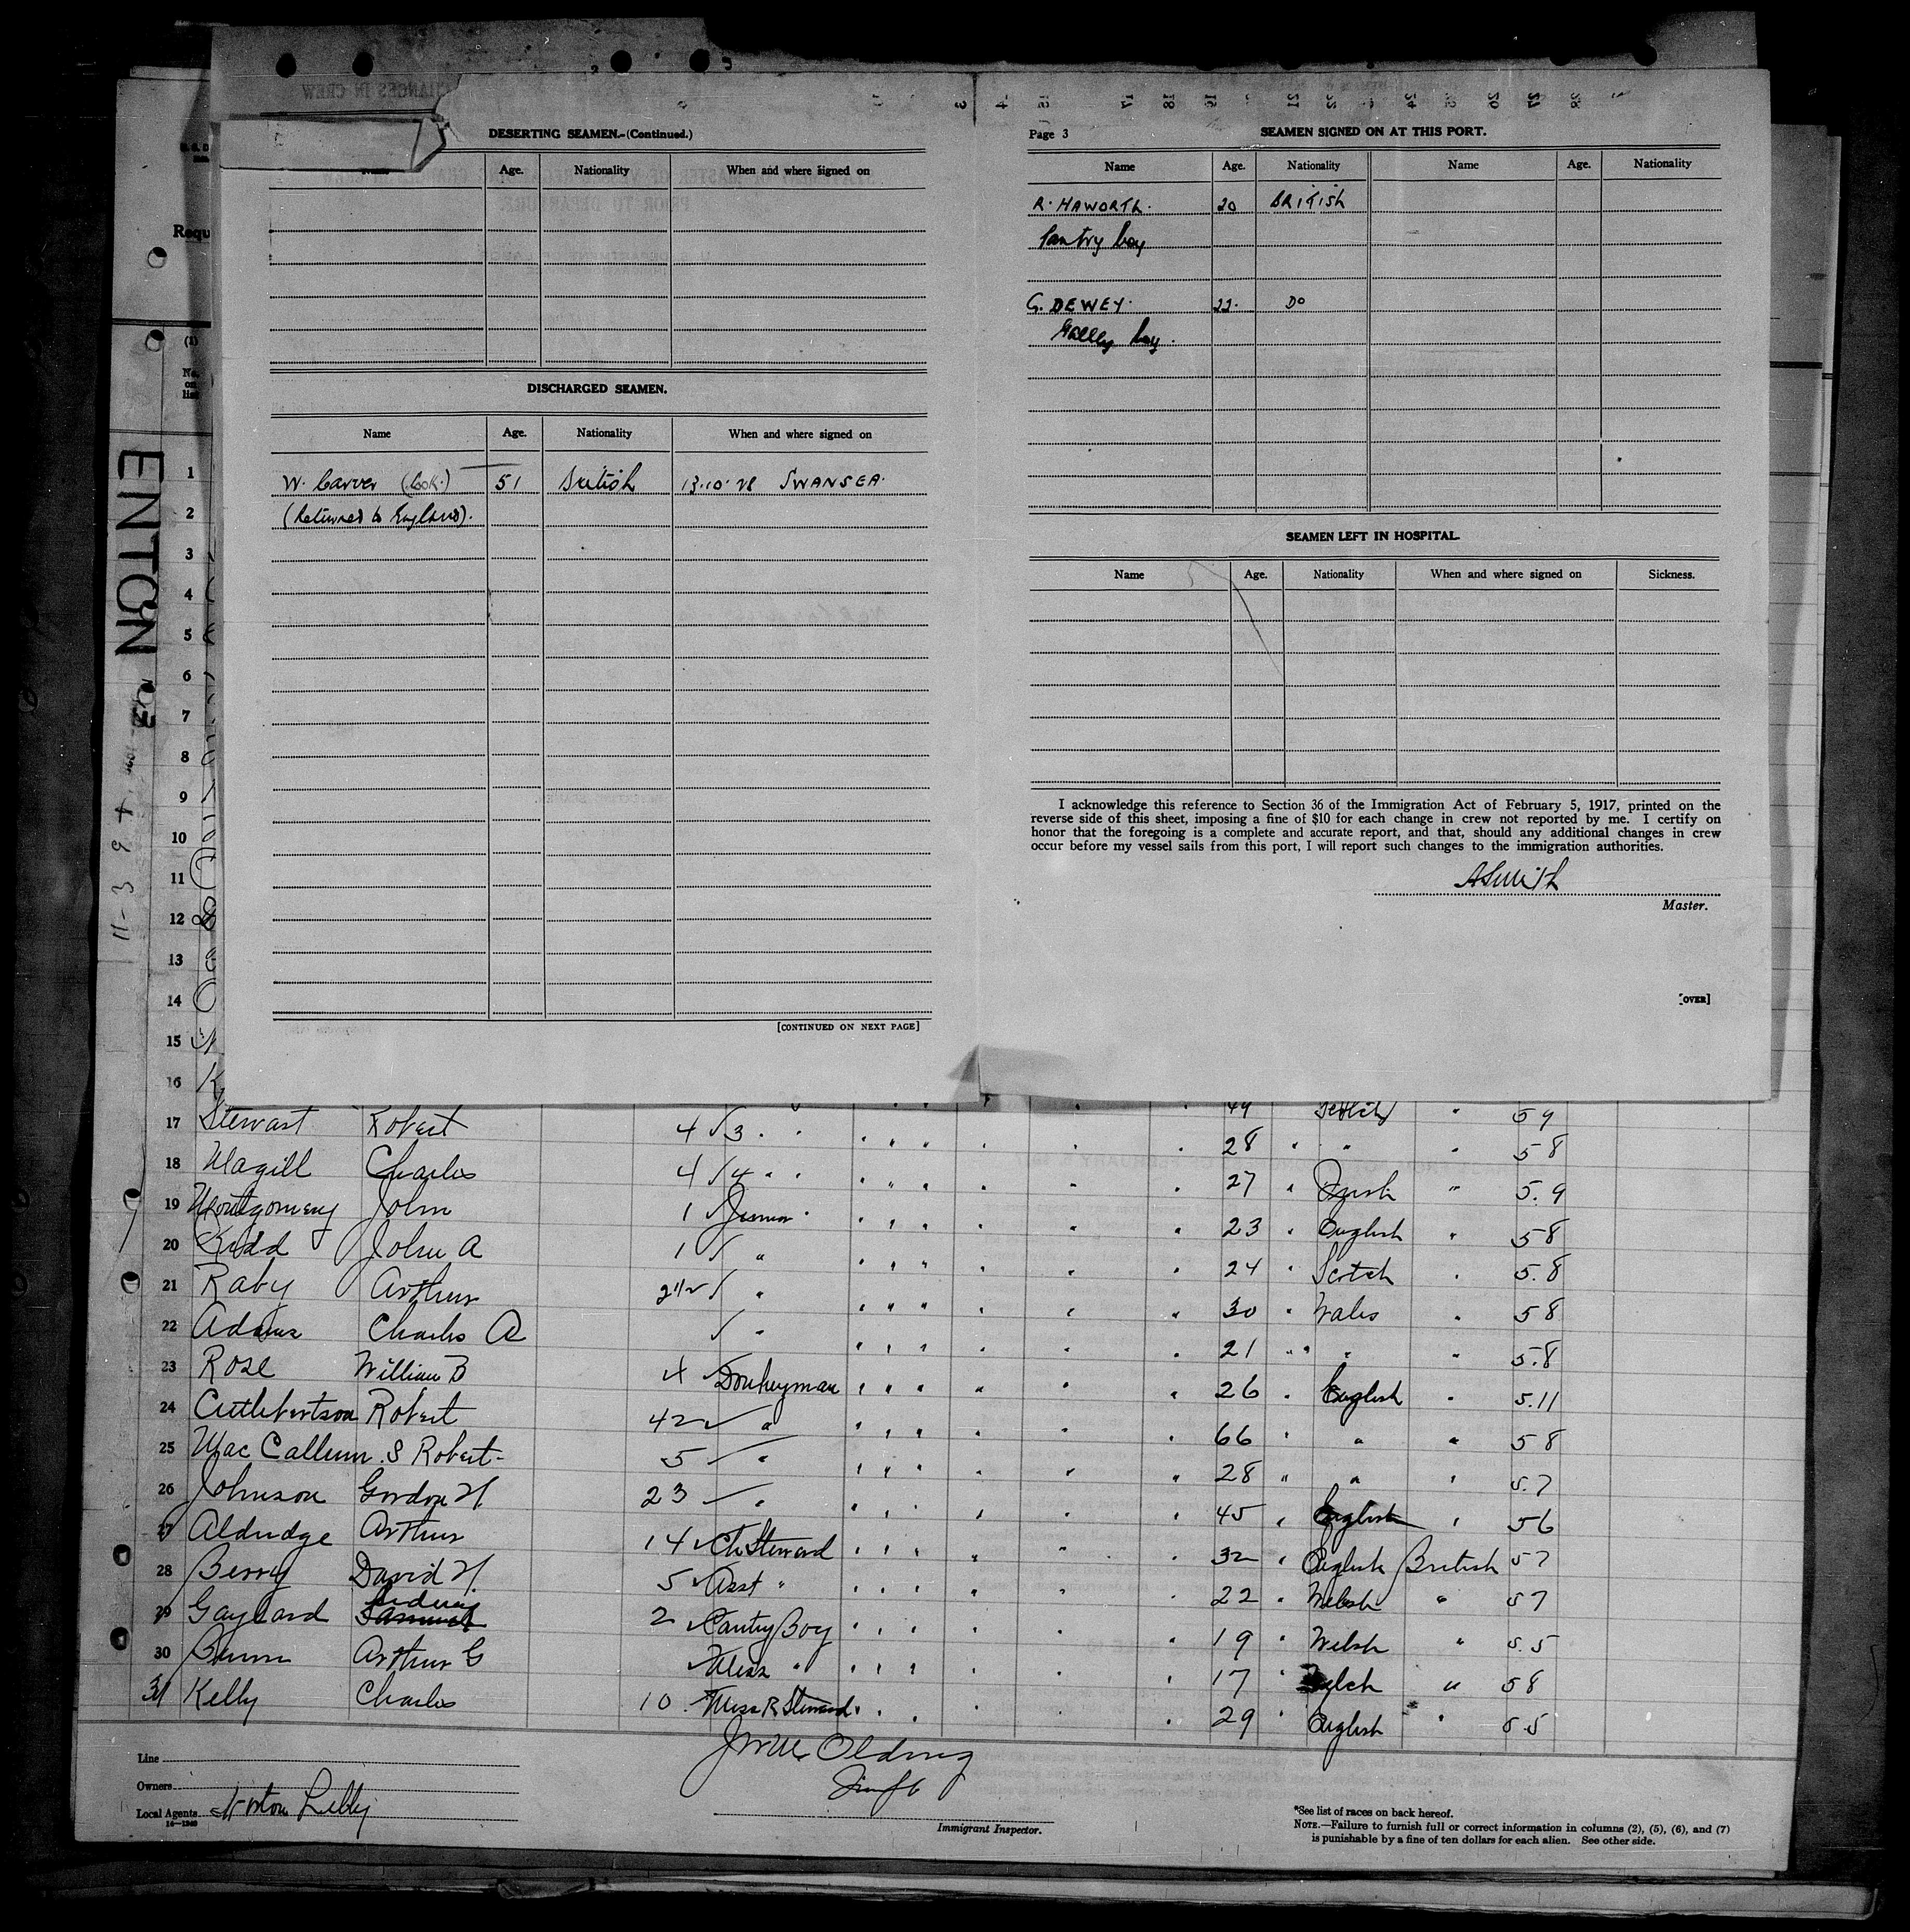 DESERTING SEAMEN.-(Continued.)
Age. Nationality When and where signed on
DISCHARGED SEAMEN.
Name Age. Nationality When and where signed on
W. Carver (Cook.) 51 British 13.10.28 SWANSEA.
(Returned to England).
[CONTINUED ON NEXT PAGE]
Page 3 SEAMEN SIGNED ON AT THIS PORT.
Name Age. Nationality Name Age. Nationality
R. HAWORTH. 20 BRITISH
Pantry boy
G. DEWEY. 22. Do
Galley boy.
SEAMEN LEFT IN HOSPITAL.
Name Age. Nationality When and where signed on Sickness.
I acknowledge this reference to Section 36 of the Immigration Act of February 5, 1917, printed on the
reverse side of this sheet, imposing a fine of $10 for each change in crew not reported by me. I certify on
honor that the foregoing is a complete and accurate report, and that, should any additional changes in crew
occur before my vessel sails from this port, I will report such changes to the immigration authorities.
A Smith
Master.
[OVER]
Requ
(1)
No.
on
list
ENTON
1
2
3
4
5
6
7
8
9
10
11
12
13
14
15
16 K
49 5 9
17 Stewart Robert 4 3 " " 28 " " " 5 8
18 Magill Charles 4 4 " " 27 " Irish " 5.9
19 Montgomery John 1 Junior 23 " English " 5 8
20 Kidd John A 1 " 24 " Scotch " 5.8
21 Raby Arthur 2 1/2 " 30 " Wales " 5 8
22 Adams Charles A " 21 " " " 5.8
23 Rose William B 4 Donkeyman 26 " English " 5.11
24 Cuttlebertson Robert 42 " 66 " " " 5 8
25 Mac Callum S Robert 5 " 28 " " " 5.7
26 Johnson Gordon H. 23 " 45 " English " 5 6
27 Aldridge Arthur 14 Ch Steward 32 " English British 5 7
28 Berry David H. 5 Asst " 22 " Welsh " 5 7
29 Gaylard 2 Pantry Boy 19 " Welsh " 5.5
30 Bunn Arthur G Mess " 17 " " 5 8
31 Kelly Charles 10 Mess R Steward 29 " English " 5.5
Line
Owners
Local Agents Norton Lilly
Immigrant Inspector.
*See list of races on back hereof.
NOTE.—Failure to furnish full or correct information in columns (2), (5), (6), and (7)
is punishable by a fine of ten dollars for each alien. See other side.